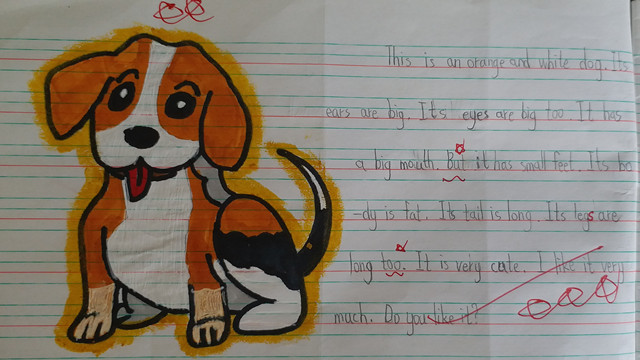 This is an orange and white dog. Its
ears are big. Its eyes are big too. It has
a big mouth. But it has small feet. Its bo
-dy is fat. Its tail is long. Its legs are
long too. It is very cute. I like it very
much. Do you like it?